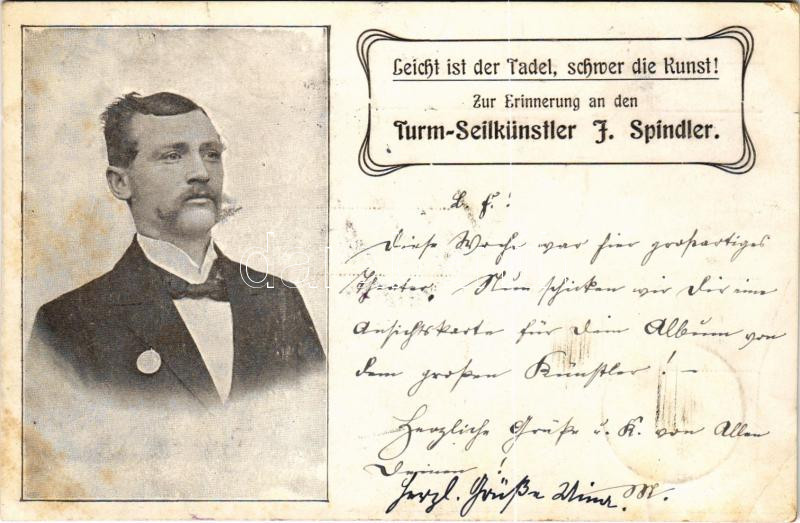 Leicht ist der Tadel, schwer die Kunst!
Zur Erinnerung an den
Turm-Seilkünstler J. Spindler.
L. F.!
Diese Woche war hier großartiges
Theater. Nun schicken wir Dir eine
Ansichtskarte für Dein Album von
dem großen Künstler! –
Herzliche Grüße u. K. von Allen
Deinen!
Herzl. Grüße M.